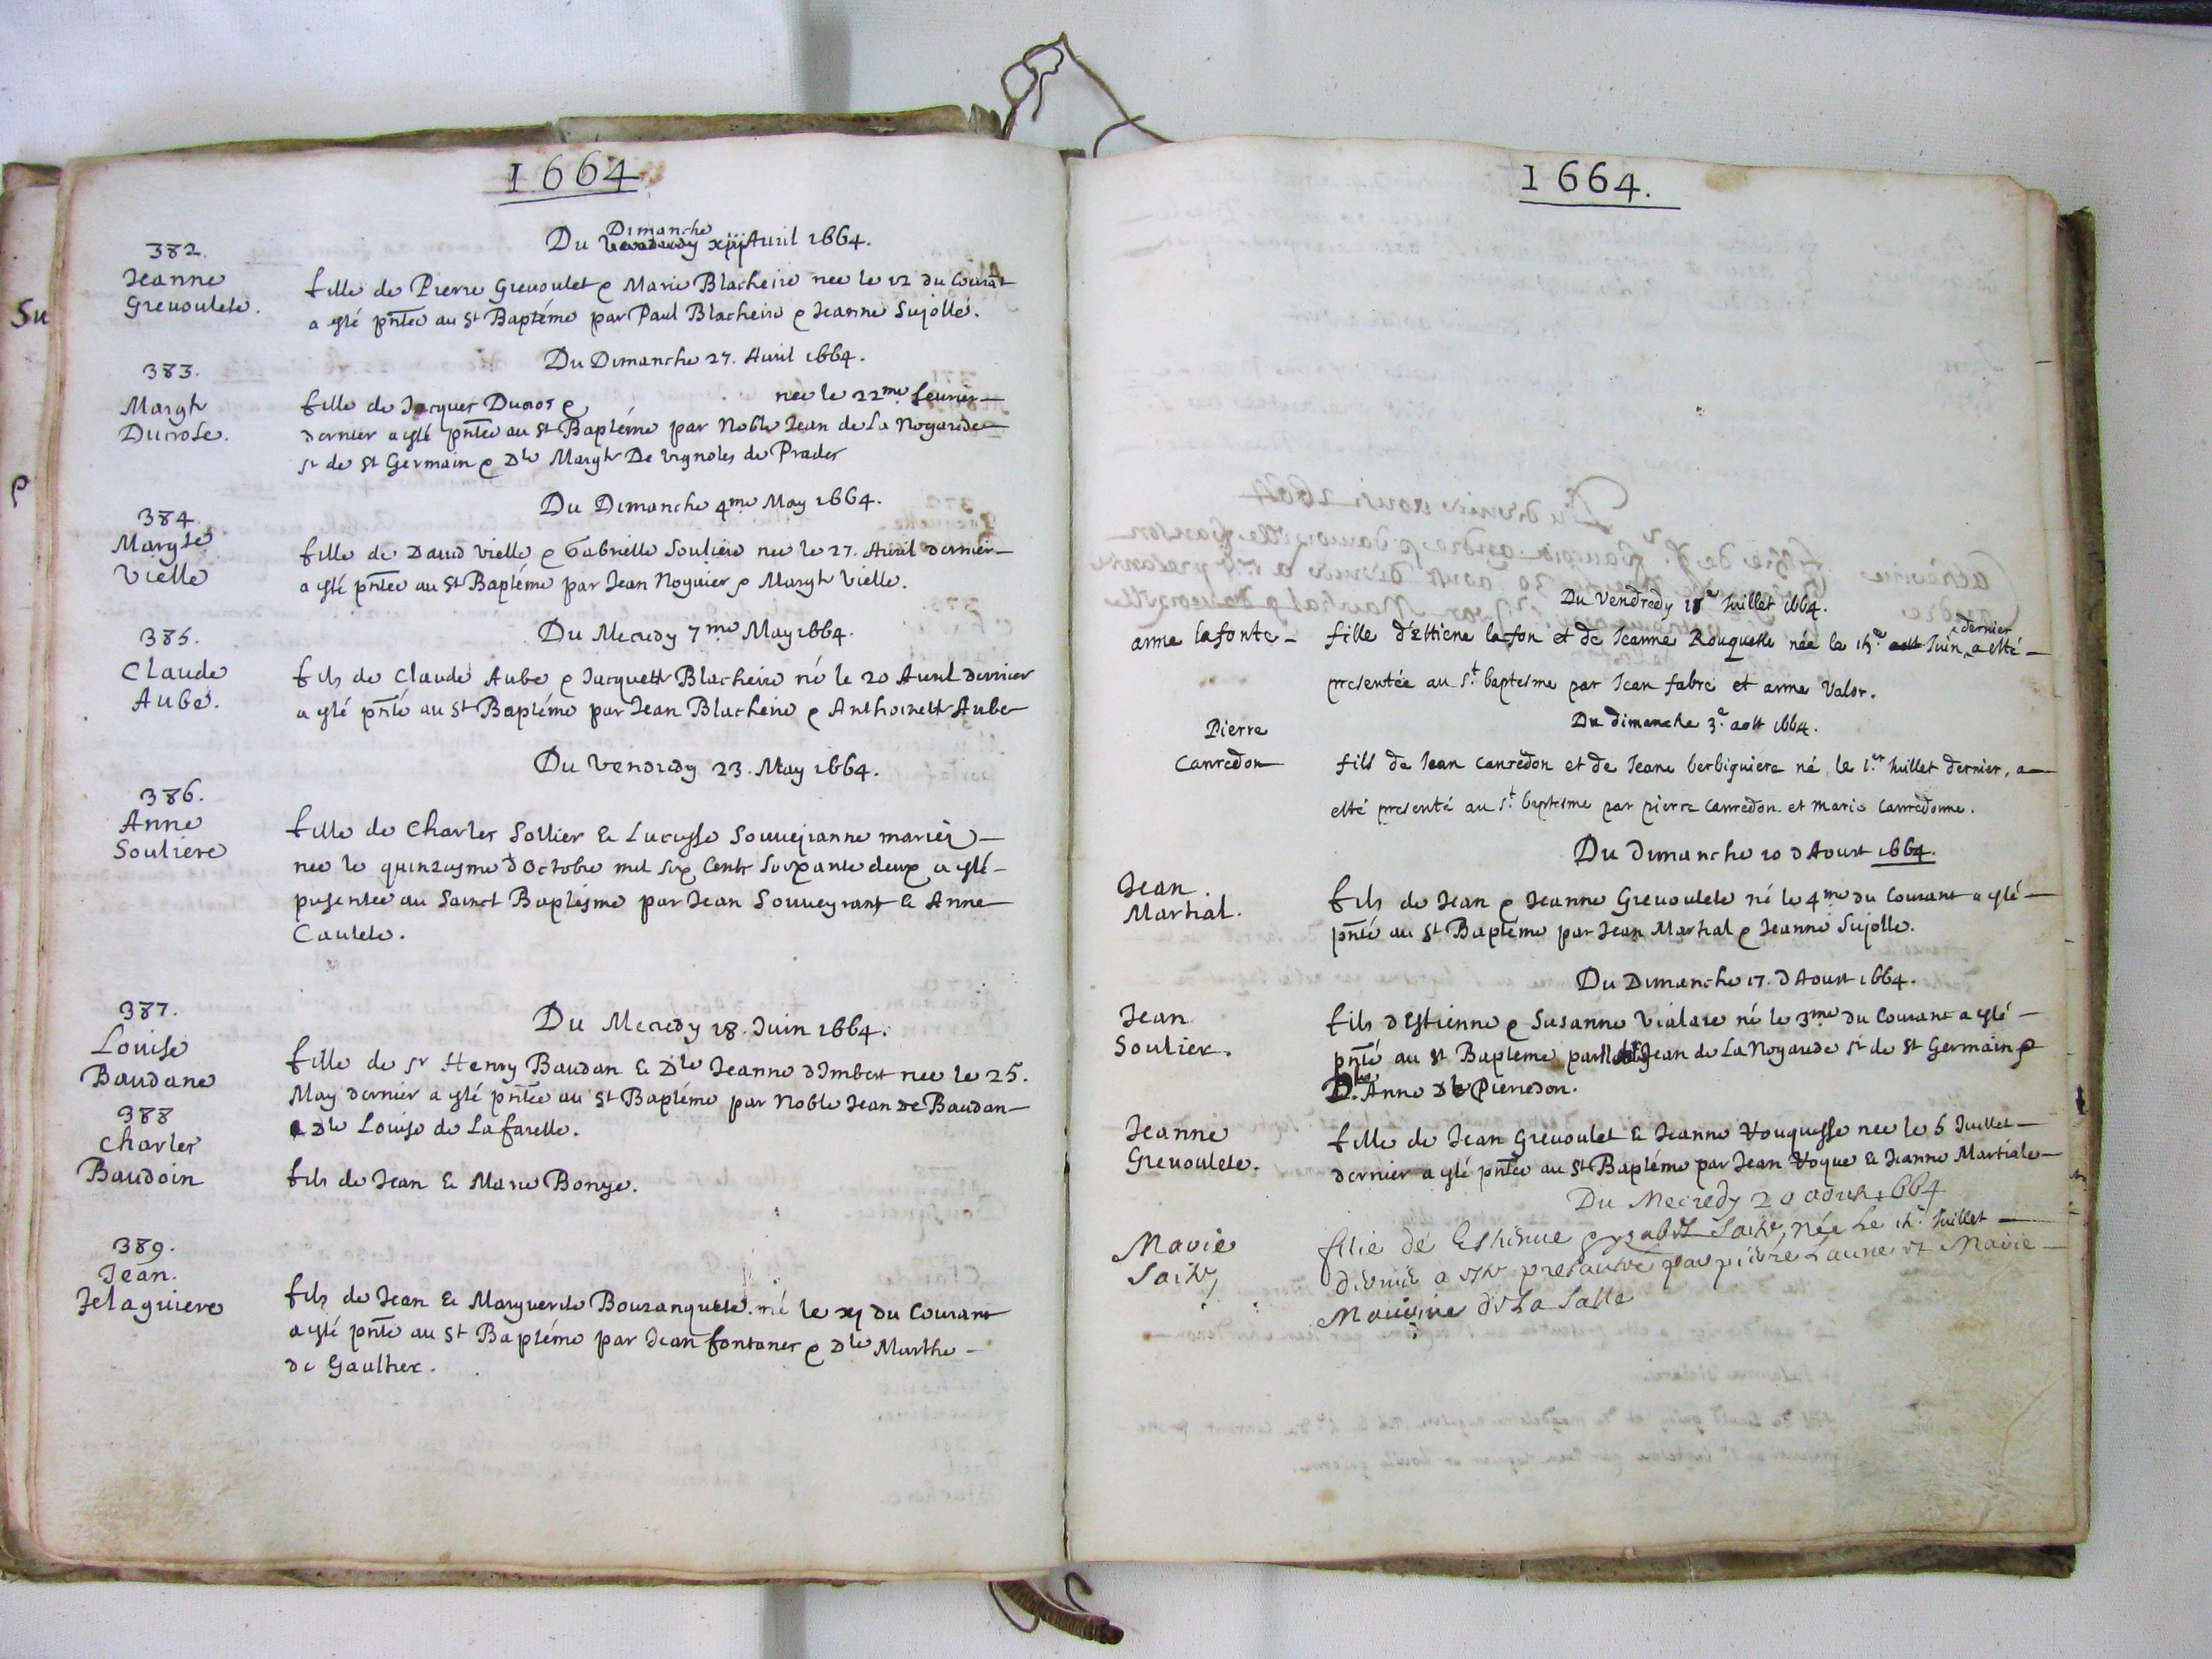 1664
Du Dimanche xiij Auril 1664.
382.
Jeanne
Greuoulete.
fille de Pierre Greuoulet & Marie Blacheire nee le vi du Courãt
a esté pñtée au St Baptéme par Paul Blacheire & Jeanne Sujolle.
Du Dimanche 27. Auril 1664.
383.
Margte
Durose.
fille de Jacques Duros & née le 22me feurier
dernier a esté pñtée au St Baptéme par Noble Jean de La Nogarede
sr de St Germain & Dle Margte De Vignoles de Prades
Du Dimanche 4me May 1664.
384.
Margte
Vielle
fille de Dauid Vielle & Gabrielle Souliere nee le 27. Auril dernier
a esté pñtée au St Baptéme par Jean Noguier & Margte Vielle.
Du Mecredy 7me May 1664.
385.
Claude
Aube.
fils de Claude Aube & Jacquette Blacheire né le 20 Auril dernier
a esté pñté au St Baptéme par Jean Blacheire & Anthoinette Aube
Du Vendredy 23. May 1664.
386.
Anne
Souliere
fille de Charles Sollier & Lucresse Souueiranne mariés
nee le quinziesme d'Octobre mil six Cents Soixante deux a esté
presentée au Sainct Baptesme par Jean Souueyrant & Anne
Caulete.
Du Mecredy 18. Juin 1664.
387.
Louise
Baudane
fille de sr Henry Baudan & Dle Jeanne d'Imbert nee le 25.
May dernier a esté pñtée au St Baptéme par Noble Jean de Baudan
& Dle Louise de Lafarelle.
388
Charles
Baudoin
fils de Jean & Marie Bonye.
389.
Jean.
Jelaguiere
fils de Jean & Marguerite Bouzanquete né le xj du Courant
a esté pñté au St Baptéme par Jean fontanes & Dle Marthe
de Gaultier.
1664.
Du Vendredy 18e Juillet 1664.
anne lafonte
fille d'Ettiene lafon et de Jeanne Rouquette née le 15e Juin dernier a esté
presentée au St. baptesme par Jean fabre et anne Valor.
Du dimanche 3e. aoust 1664.
Pierre
Canredon
fils de Jean canredon et de Jeane berbiguiere né le 1er Juillet dernier, a
esté presenté au St. baptesme par pierre canredon et marie canredonne.
Du dimanche 10 d'Aoust 1664.
Jean.
Martial.
fils de Jean & Jeanne Greuoulete né le 4me du Courant a esté
pñté au St Baptéme par Jean Martial & Jeanne Sujolle.
Du Dimanche 17. d'Aoust 1664.
Jean
Soulier.
fils d'Estienne & Susanne Vialare né le 3me du Courant a esté
pñté au St Baptéme par Noble Jean de La Nogarede sr de St Germain &
Dle. Anne de Pierredon.
Jeanne
Greuoulete.
fille de Jean Greuoulet & Jeanne Vouquesse nee le 6 Juillet
dernier a esté pñtée au St Baptéme par Jean Voque & Jeanne Martiale
Du Mecredy 20 aoust 1664
Marie
filie de Esthienne & née Le 15e Juillet
dernie a este presantée par pierre Laune et Marie
de La Salle